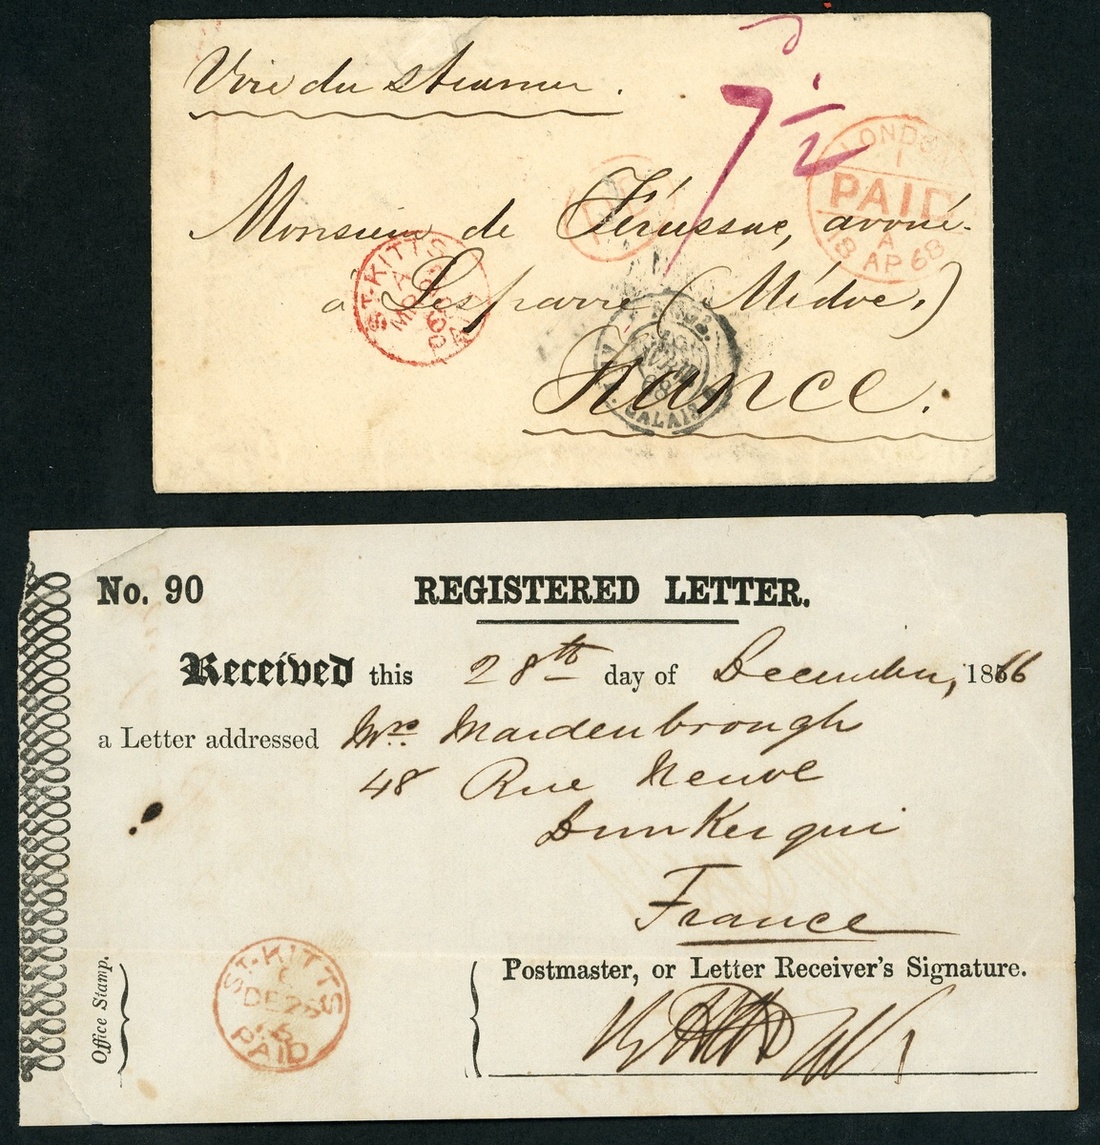 Voie du steamer.
7 1/2
LONDON
1
PAID
A
18 AP 68
Monsieur de Férussac, avoué.
à Lesparre (Médoc,)
France.
ST-KITTS
A
PAID
CALAIS
68
No. 90
REGISTERED LETTER.
Received this 28th day of December, 1866
a Letter addressed Mrs. Mardenbrough
48 Rue Neuve
Dunkerque
France
Postmaster, or Letter Receiver's Signature.
Office Stamp.
ST-KITTS
C
DE 28
66
PAID